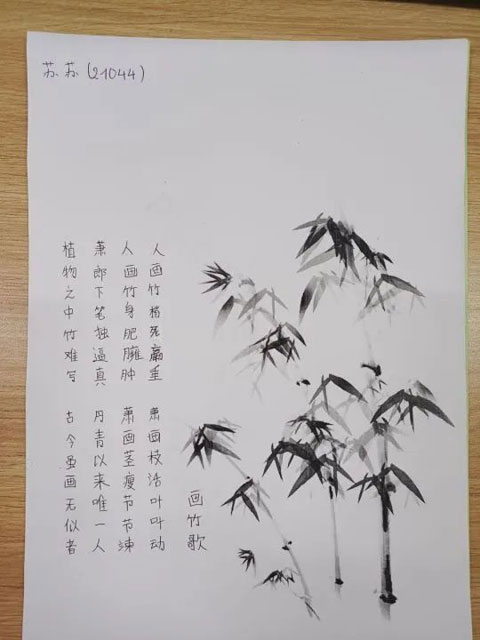 苏苏(21044)
植物之中竹难写
古今虽画无似者
萧郎下笔独逼真
丹青以来唯一人
人画竹身肥臃肿
萧画茎瘦节节竦
人画竹梢死羸垂
萧画枝活叶叶动
画竹歌